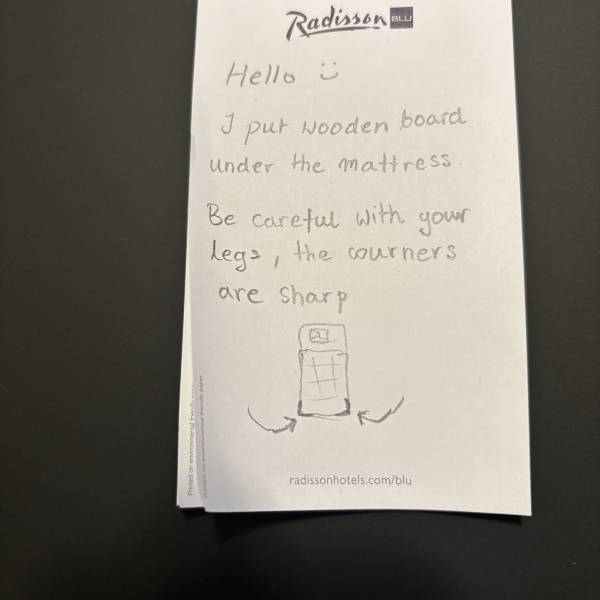 Radisson BLU
Hello :)
I put wooden board
under the mattress.
Be careful with your
legs, the courners
are sharp
radissonhotels.com/blu
Printed on environmental friendly paper